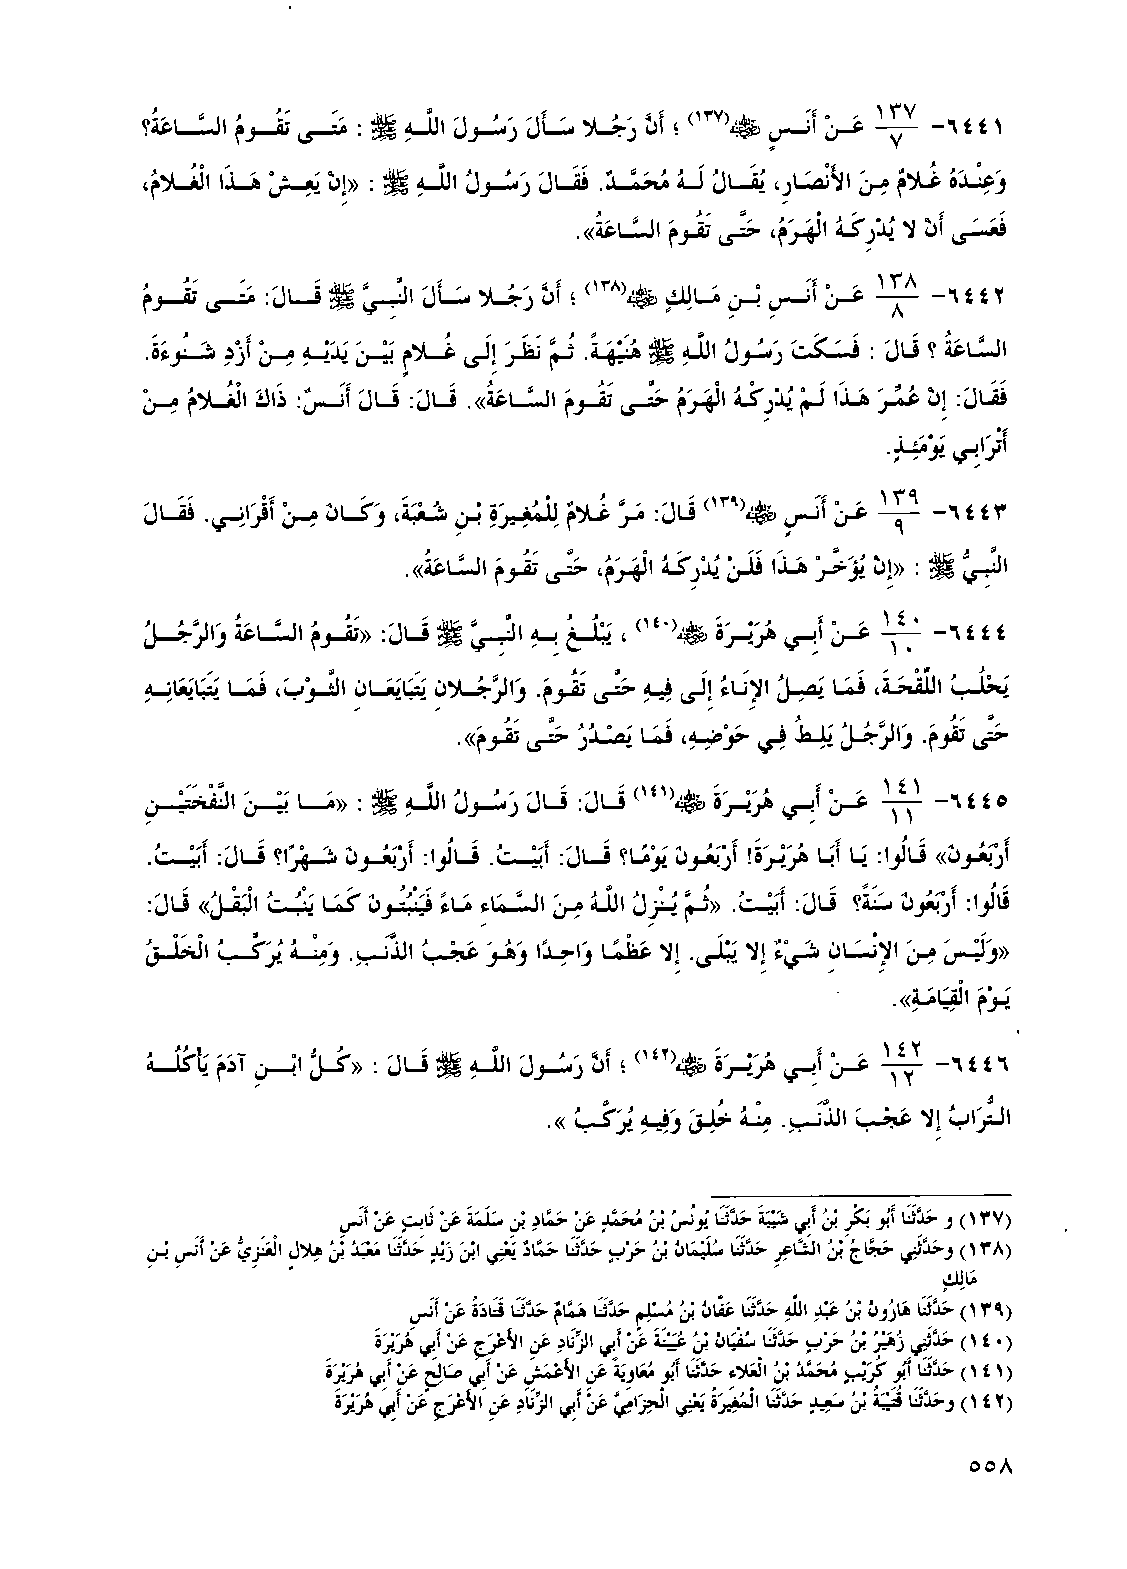 ٦٤٤١- ١٣٧/٧ عَـنْ أَنَـسٍ ﷺ(١٣٧) ؛ أَنَّ رَجُـلا سَـأَلَ رَسُـولَ اللَّـهِ ﷺ : مَتَـى تَقُـومُ السَّـاعَةُ؟
وَعِنْـدَهُ غُـلامٌ مِـنَ الأَنْصَـارِ، يُقَـالُ لَـهُ مُحَمَّـدٌ. فَقَـالَ رَسُـولُ اللَّـهِ ﷺ : «إِنْ يَعِـشْ هَـذَا الْغُـلامُ،
فَعَسَى أَنْ لا يُدْرِكَهُ الْهَرَمُ، حَتَّى تَقُومَ السَّاعَةُ».
٦٤٤٢- ١٣٨/٨ عَـنْ أَنَـسِ بْـنِ مَـالِكٍ ﷺ(١٣٨) ؛ أَنَّ رَجُـلا سَـأَلَ النَّبِـيَّ ﷺ قَـالَ: مَتَـى تَقُـومُ
السَّاعَةُ ؟ قَالَ : فَسَكَتَ رَسُولُ اللَّهِ ﷺ هُنَيْهَةً. ثُمَّ نَظَرَ إِلَى غُلامٍ بَيْنَ يَدَيْهِ مِنْ أَزْدِ شَنُوءَةَ.
فَقَالَ: إِنْ عُمِّرَ هَذَا لَمْ يُدْرِكْهُ الْهَرَمُ حَتَّى تَقُومَ السَّاعَةُ». قَالَ: قَالَ أَنَسٌ: ذَاكَ الْغُلامُ مِنْ
أَتْرَابِي يَوْمَئِذٍ.
٦٤٤٣- ١٣٩/٩ عَـنْ أَنَـسٍ ﷺ(١٣٩) قَالَ: مَرَّ غُلامٌ لِلْمُغِيرَةِ بْنِ شُعْبَةَ، وَكَانَ مِـنْ أَقْرَانِـي. فَقَـالَ
النَّبِيُّ ﷺ : «إِنْ يُؤَخَّرْ هَذَا فَلَنْ يُدْرِكَهُ الْهَرَمُ، حَتَّى تَقُومَ السَّاعَةُ».
٦٤٤٤- ١٤٠/١٠ عَـنْ أَبِـي هُرَيْـرَةَ ﷺ(١٤٠) ، يَبْلُـغُ بِـهِ النَّبِـيَّ ﷺ قَـالَ: «تَقُـومُ السَّـاعَةُ وَالرَّجُـلُ
يَحْلُبُ اللِّقْحَةَ، فَمَا يَصِلُ الإِنَاءُ إِلَى فِيهِ حَتَّى تَقُومَ. وَالرَّجُلانِ يَتَبَايَعَانِ الثَّوْبَ، فَمَا يَتَبَايَعَانِهِ
حَتَّى تَقُومَ. وَالرَّجُلُ يَلِطُ فِي حَوْضِهِ، فَمَا يَصْدُرُ حَتَّى تَقُومَ».
٦٤٤٥- ١٤١/١١ عَـنْ أَبِـي هُرَيْـرَةَ ﷺ(١٤١) قَـالَ: قَـالَ رَسُـولُ اللَّـهِ ﷺ : «مَـا بَيْـنَ النَّفْخَتَيْـنِ
أَرْبَعُونَ» قَالُوا: يَا أَبَا هُرَيْرَةَ! أَرْبَعُونَ يَوْمًا؟ قَالَ: أَبَيْتُ. قَالُوا: أَرْبَعُونَ شَهْرًا؟ قَالَ: أَبَيْتُ.
قَالُوا: أَرْبَعُونَ سَنَةً؟ قَالَ: أَبَيْتُ. «ثُمَّ يُنْزِلُ اللَّهُ مِنَ السَّمَاءِ مَاءً فَيَنْبُتُونَ كَمَا يَنْبُتُ الْبَقْلُ» قَالَ:
«وَلَيْسَ مِنَ الإِنْسَانِ شَيْءٌ إِلا يَبْلَى. إِلا عَظْمًا وَاحِدًا وَهُوَ عَجْبُ الذَّنَبِ. وَمِنْهُ يُرَكَّبُ الْخَلْقُ
يَوْمَ الْقِيَامَةِ».
٦٤٤٦- ١٤٢/١٢ عَـنْ أَبِـي هُرَيْـرَةَ ﷺ(١٤٢) ؛ أَنَّ رَسُـولَ اللَّـهِ ﷺ قَـالَ : «كُـلُّ ابْـنِ آدَمَ يَأْكُلُـهُ
التُّرَابُ إِلا عَجْبَ الذَّنَبِ. مِنْهُ خُلِقَ وَفِيهِ يُرَكَّبُ ».
(١٣٧) و حَدَّثَنَا أَبُو بَكْرِ بْنُ أَبِي شَيْبَةَ حَدَّثَنَا يُونُسُ بْنُ مُحَمَّدٍ عَنْ حَمَّادِ بْنِ سَلَمَةَ عَنْ ثَابِتٍ عَنْ أَنَسٍ
(١٣٨) وحَدَّثَنِي حَجَّاجُ بْنُ الشَّاعِرِ حَدَّثَنَا سُلَيْمَانُ بْنُ حَرْبٍ حَدَّثَنَا حَمَّادٌ يَعْنِي ابْنَ زَيْدٍ حَدَّثَنَا مَعْبَدُ بْنُ هِلالٍ الْعَنَزِيُّ عَنْ أَنَسِ بْنِ
مَالِكٍ
(١٣٩) حَدَّثَنَا هَارُونُ بْنُ عَبْدِ اللَّهِ حَدَّثَنَا عَفَّانُ بْنُ مُسْلِمٍ حَدَّثَنَا هَمَّامٌ حَدَّثَنَا قَتَادَةُ عَنْ أَنَسٍ
(١٤٠) حَدَّثَنِي زُهَيْرُ بْنُ حَرْبٍ حَدَّثَنَا سُفْيَانُ بْنُ عُيَيْنَةَ عَنْ أَبِي الزِّنَادِ عَنِ الأَعْرَجِ عَنْ أَبِي هُرَيْرَةَ
(١٤١) حَدَّثَنَا أَبُو كُرَيْبٍ مُحَمَّدُ بْنُ الْعَلاءِ حَدَّثَنَا أَبُو مُعَاوِيَةَ عَنِ الأَعْمَشِ عَنْ أَبِي صَالِحٍ عَنْ أَبِي هُرَيْرَةَ
(١٤٢) وحَدَّثَنَا قُتَيْبَةُ بْنُ سَعِيدٍ حَدَّثَنَا الْمُغِيرَةُ يَعْنِي الْحِزَامِيَّ عَنْ أَبِي الزِّنَادِ عَنِ الأَعْرَجِ عَنْ أَبِي هُرَيْرَةَ
٥٥٨